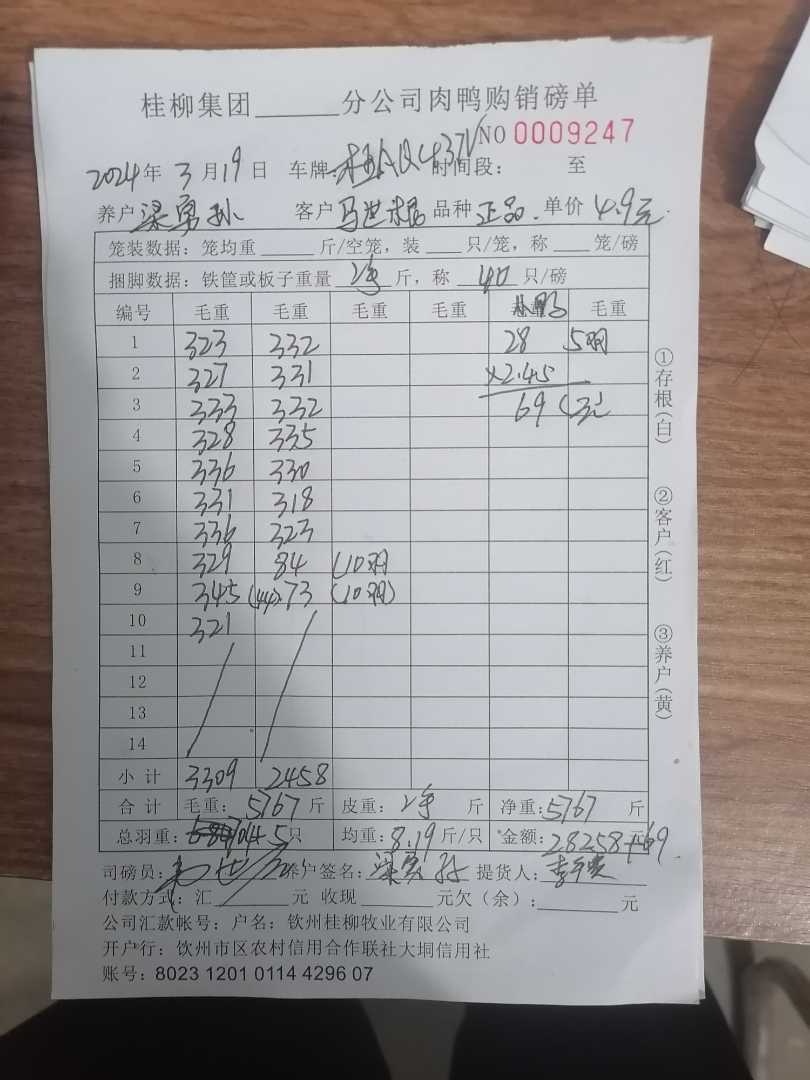 桂柳集团______分公司肉鸭购销磅单
NO 0009247
2024年 3月19日 车牌: 时间段: 至
养户 梁勇孙 客户 马世 品种 正品. 单价 4.9元.
笼装数据: 笼均重 ______ 斤/空笼, 装 ____ 只/笼, 称 ____ 笼/磅
捆脚数据: 铁筐或板子重量 斤, 称 40 只/磅
编号 毛重 毛重 毛重 毛重 毛重
1 323 332 28 5羽
2 327 331 ×2.45
3 333 332 69 (元
4 328 335
5 336 330
6 331 318
7 336 323
8 329 84 (10羽
9 345 (44) 73 (10羽)
10 321
11
12
13
14
小计 3309 2458
合计 毛重: 5767 斤 皮重: 斤 净重: 5767 斤
总羽重: 704 5只 均重: 8.19 斤/只 金额: 28258+69 元
司磅员: 养户签名: 梁勇孙 提货人:
付款方式: 汇______元 收现______元欠(余):______元
公司汇款帐号: 户名: 钦州桂柳牧业有限公司
开户行: 饮州市区农村信用合作联社大垌信用社
账号: 8023 1201 0114 4296 07
①存根(白)
②客户(红)
③养户(黄)